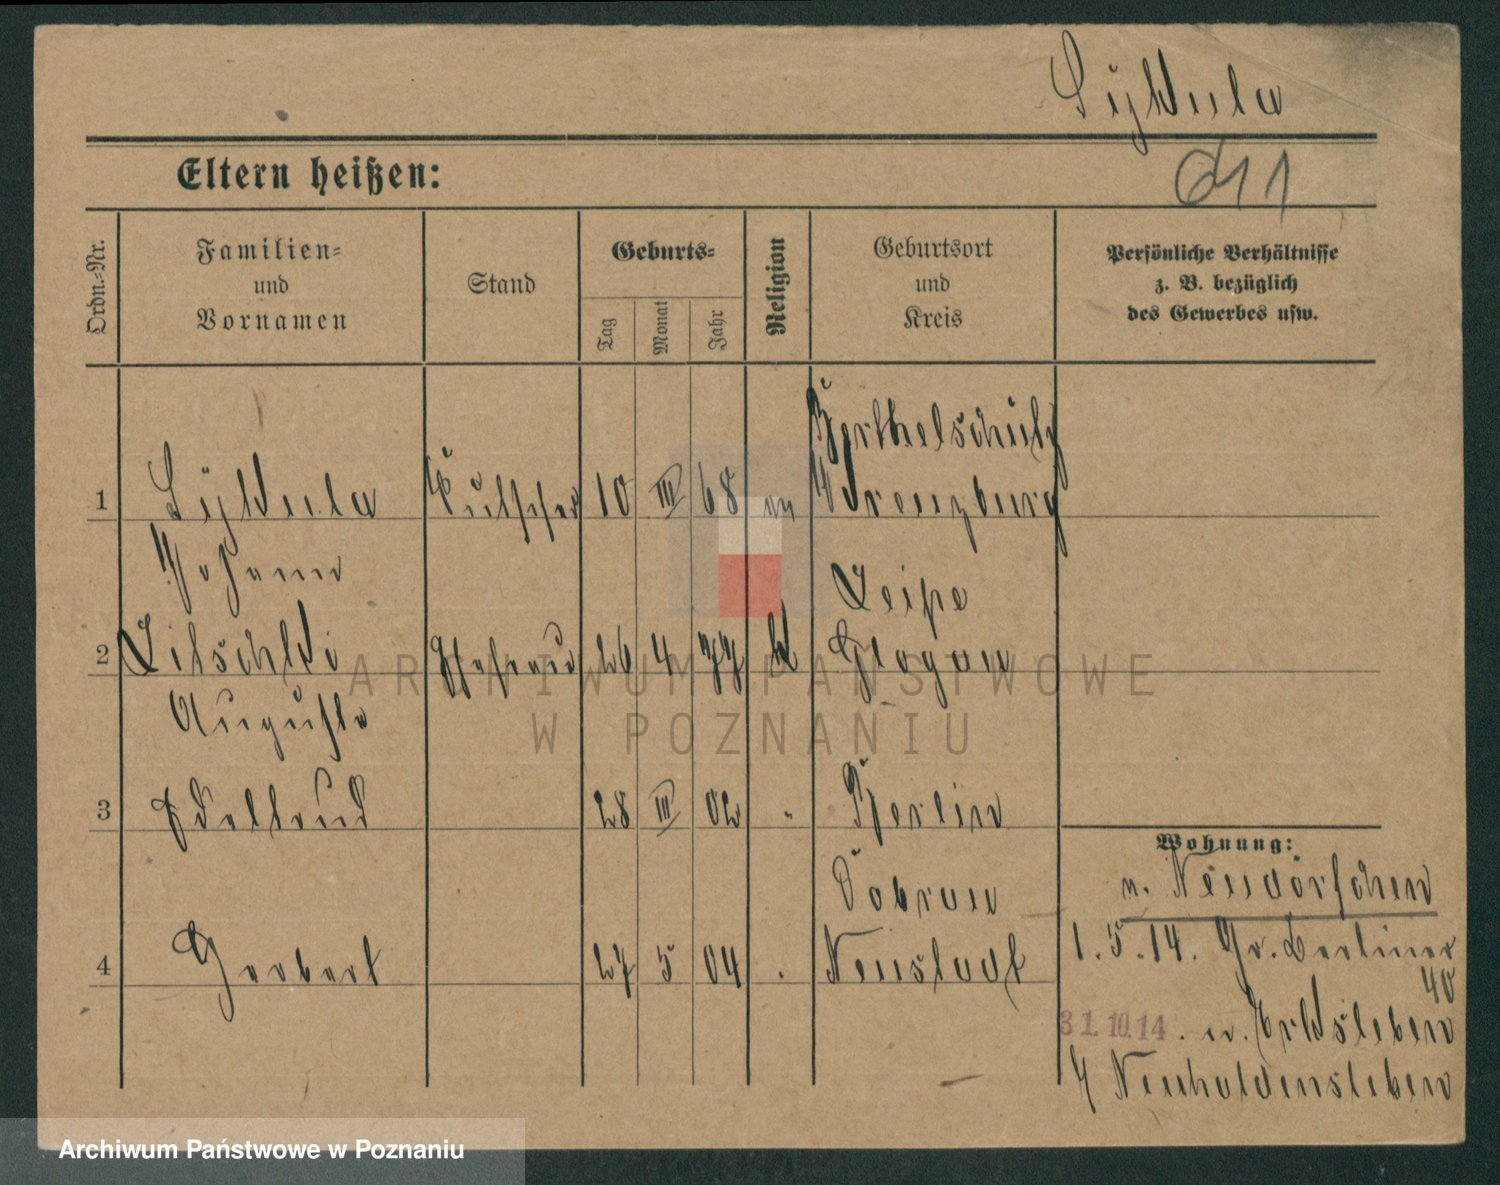 Sykula
Eltern heißen:
Ordn.-Nr.
Familien-
und
Vornamen
Stand
Geburts-
Tag
Monat
Jahr
Religion
Geburtsort
und
Kreis
Persönliche Verhältnisse
z. B. bezüglich
des Gewerbes usw.
1 Sykula Kutscher 10 III 68 Kreuzburg
Johann
Leipe
2 Ehefrau 26 4 77 k Glogau
Auguste
3 Edeltrud 28 III 02 " Berlin
Wohnung:
n. Neudörfchen
Dobrau
4 Herbert 27 5 04 " Neustadt
1.5.14. Gr. Berliner
40
31.10.14. n. Erxleben
Neuhaldensleben
ARCHIWUM PAŃSTWOWE
W POZNANIU
Archiwum Państwowe w Poznaniu